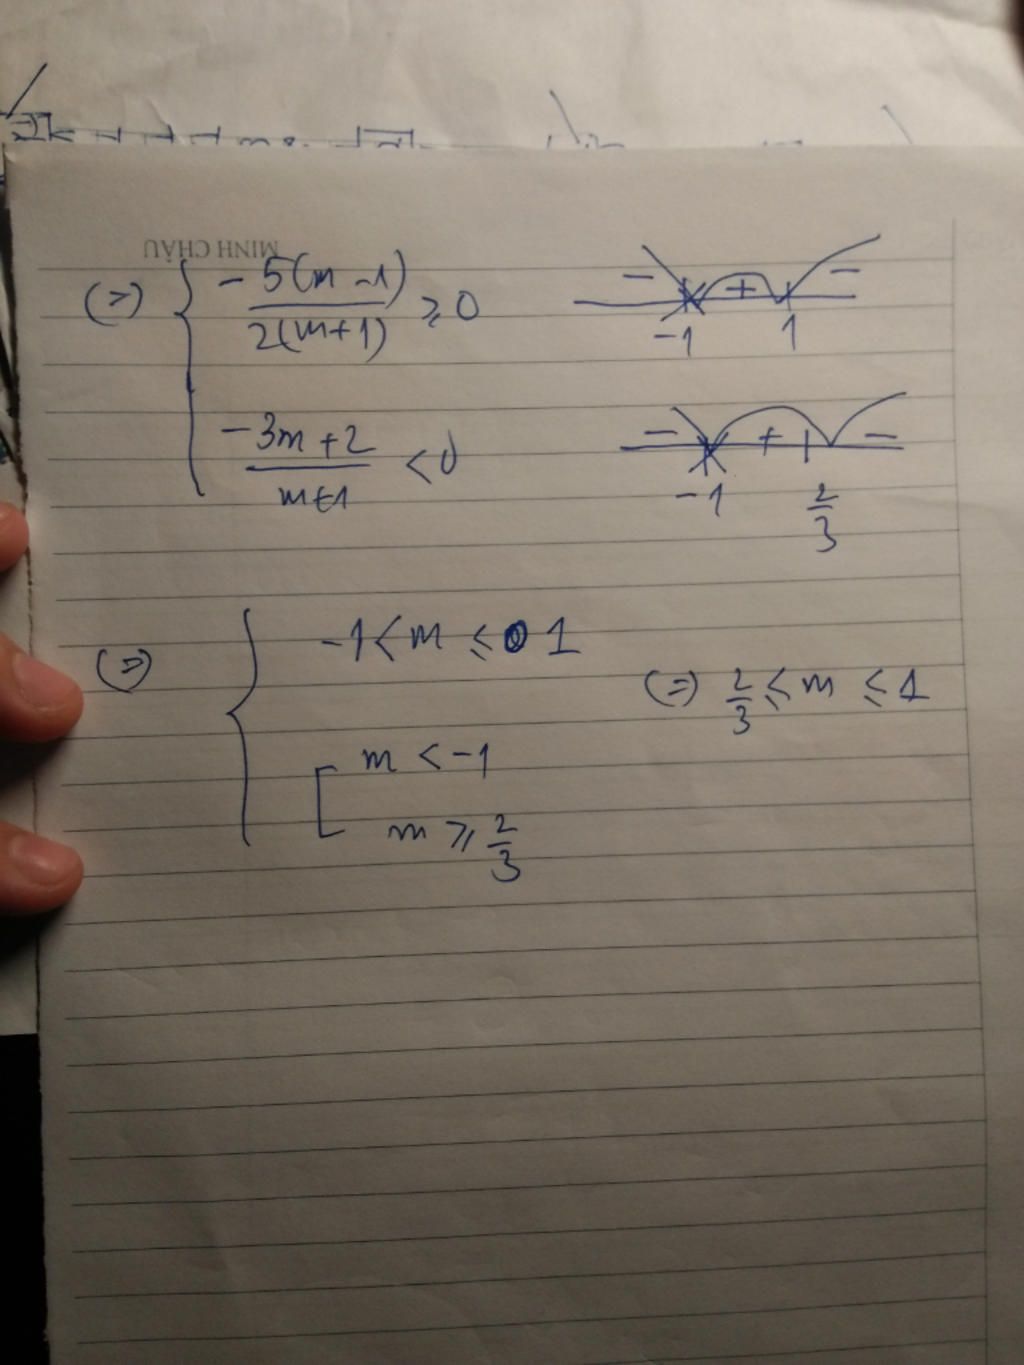 MINH CHÂU
(=) { -5(m-1)/2(m+1) ⩾ 0
- + -
-1 1
-3m+2/m+1 < 0
- + -
-1 2/3
(=) { -1 < m ⩽ 1
[ m < -1
m ⩾ 2/3
(=) 2/3 ⩽ m ⩽ 1